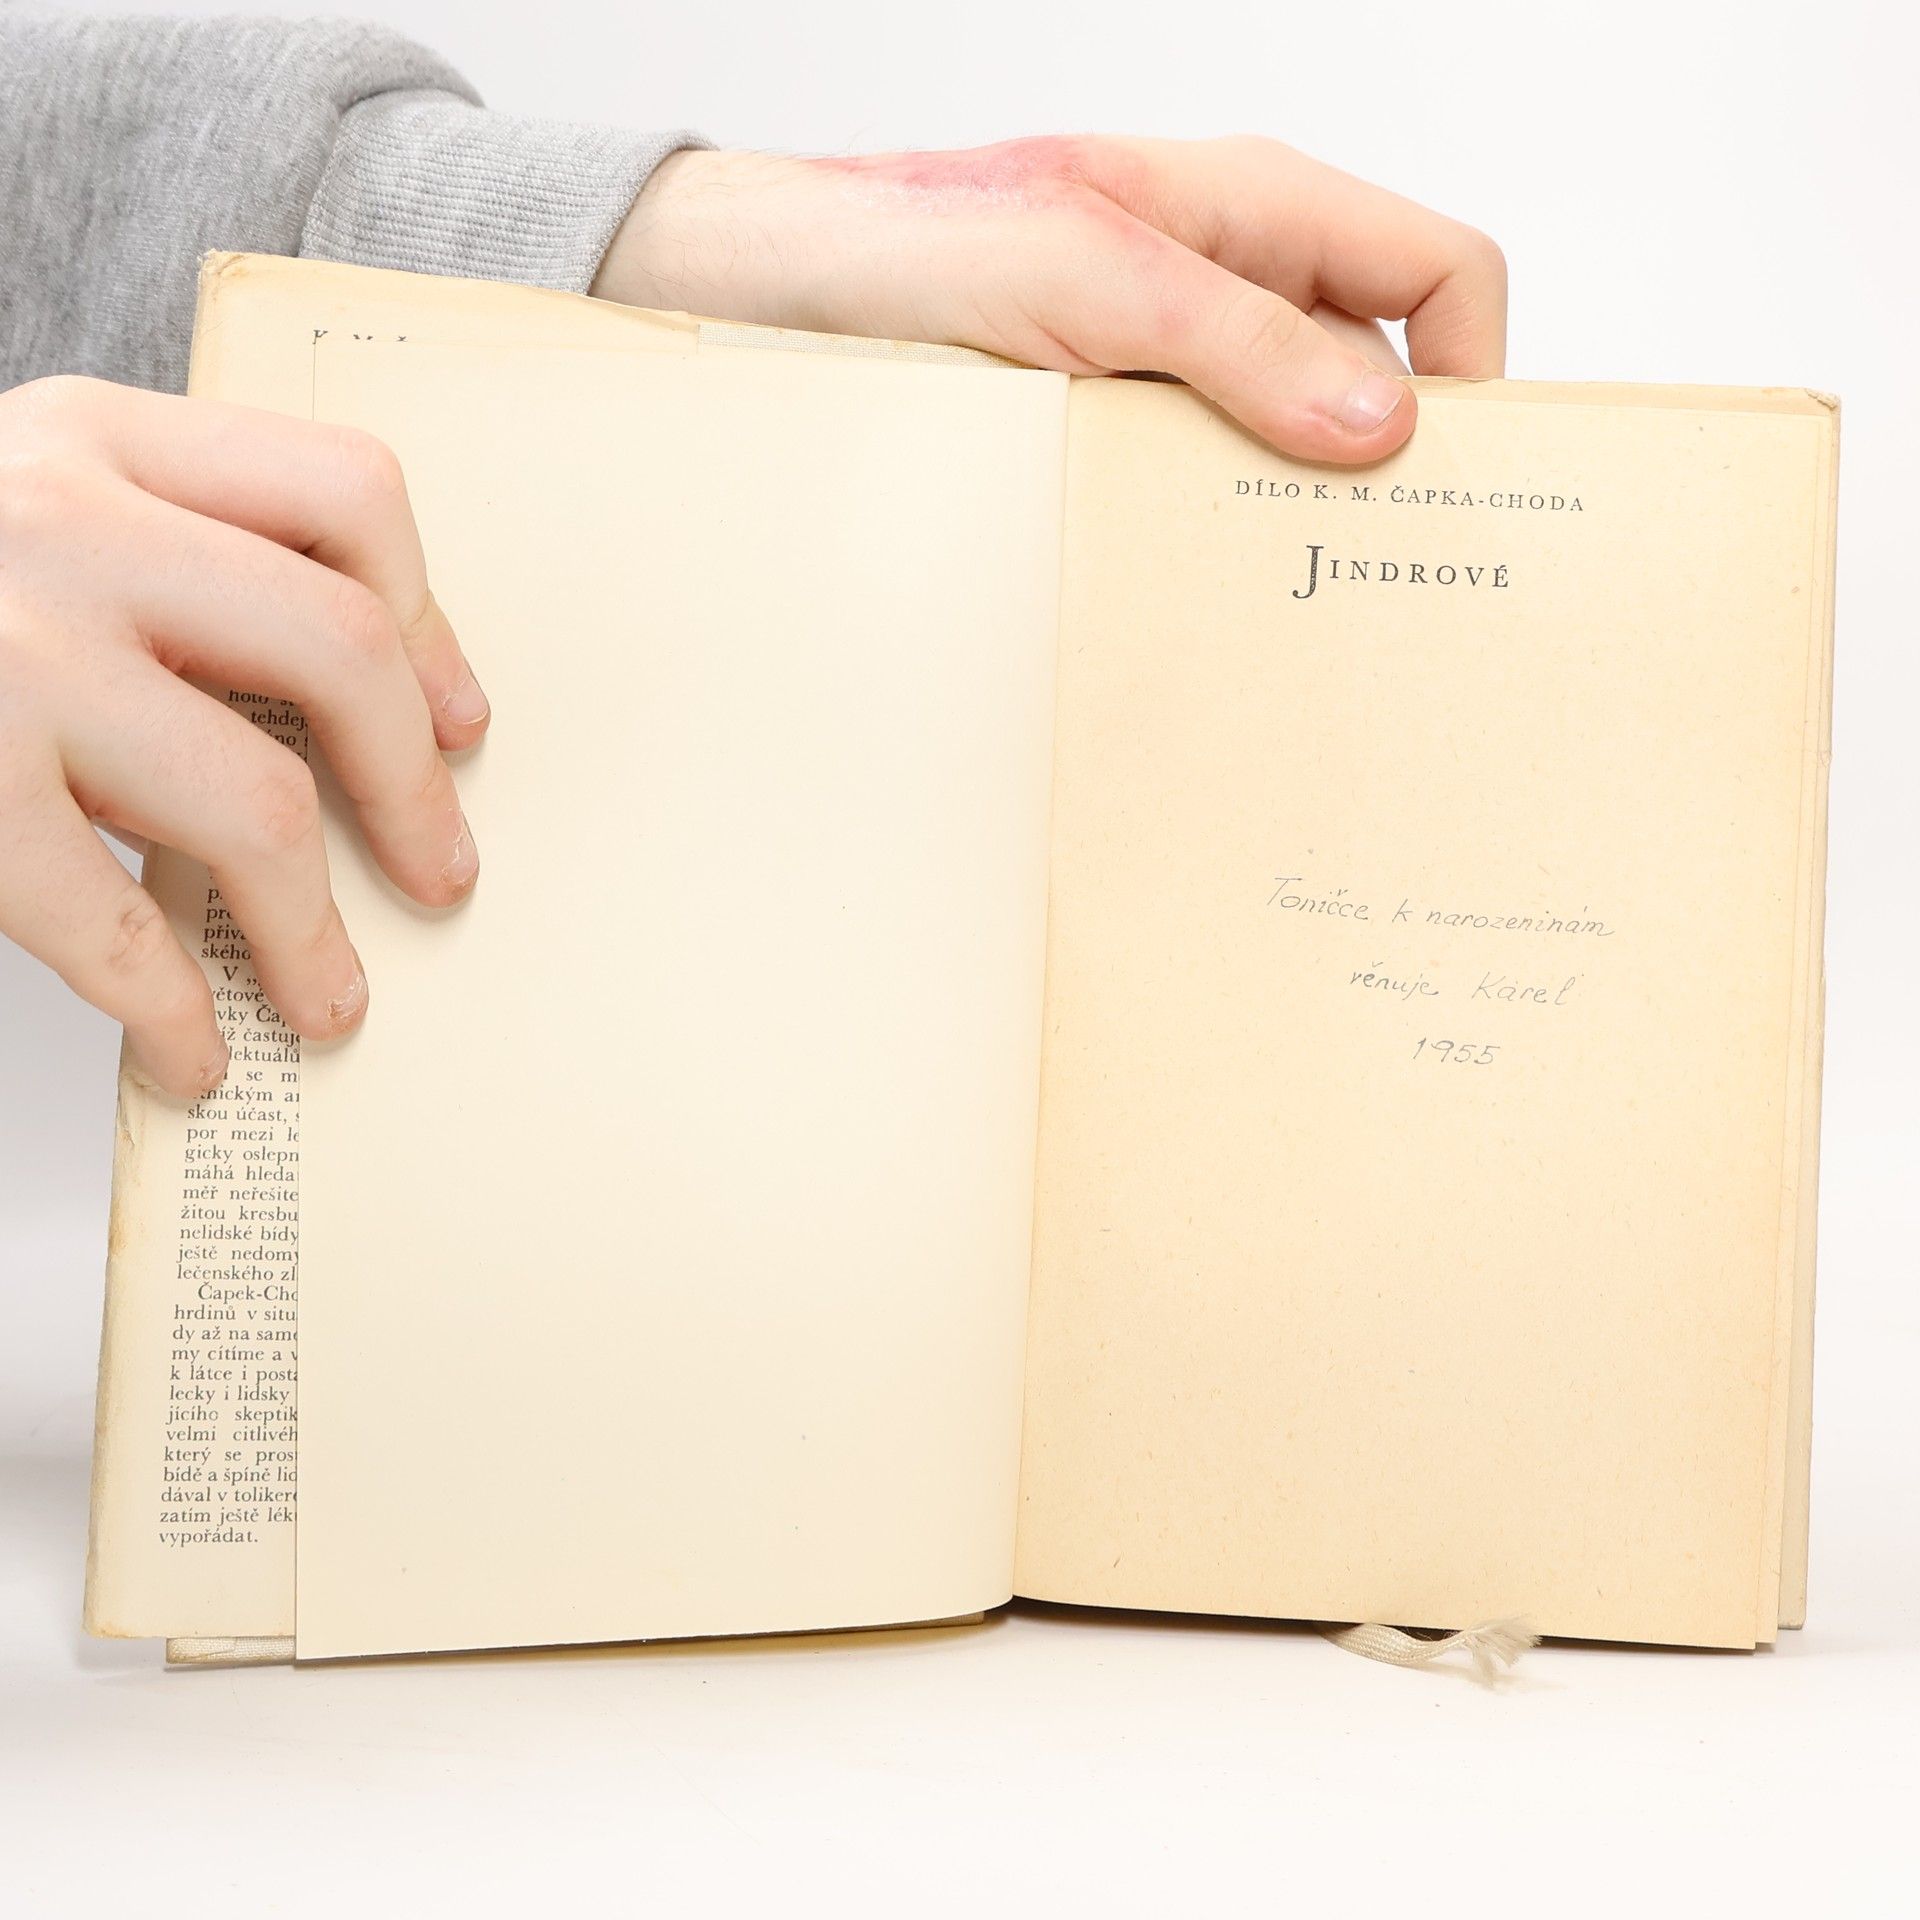 hoto
tehdej
přiv
ského
V „
větové
vky Čap
íž častuj
lektuálů
se m
tnickým
skou účast,
por mezi
gicky oslepn
máhá hleda
měř neřešite
žitou kresbu
nelidské bídy
ještě nedomy
lečenského zl
Čapek-Cho
hrdinů v situ
dy až na same
my cítíme a v
k látce i posta
lecky i lidsky
jícího skeptik
velmi citlivéh
který se pros
bídě a špíně lid
dával v tolikere
zatím ještě lék
vypořádat.
DÍLO K. M. ČAPKA-CHODA
JINDROVÉ
Toničce k narozeninám
věnuje Karel
1955